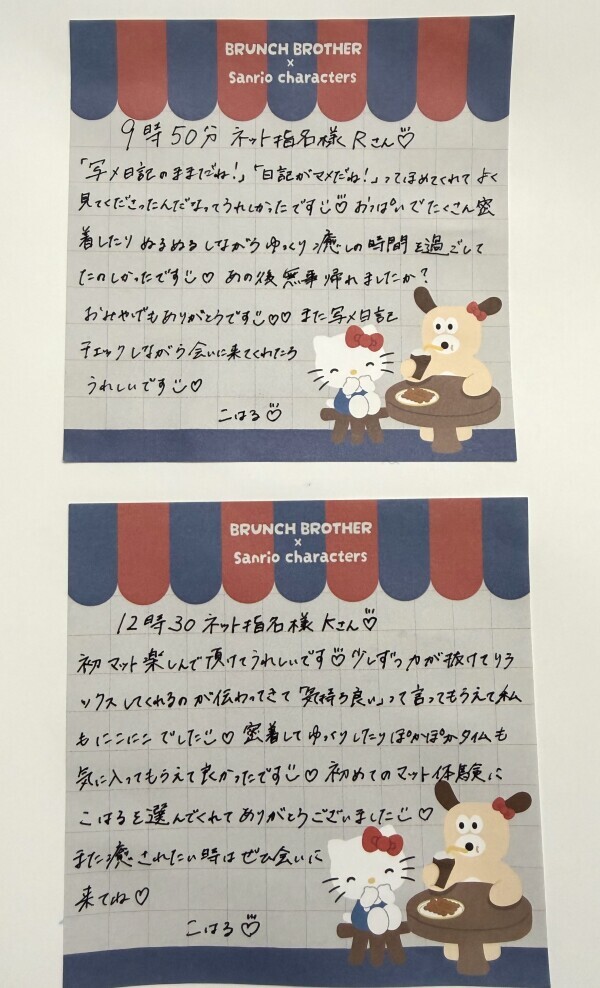 BRUNCH BROTHER
×
Sanrio characters
9時50分 ネット指名様 Rさん♡
「写メ日記のままだね!」「日記がマメだね!」ってほめてくれて よく
見てくださったんだなってうれしかったです♡ おっぱいでたくさん密
着したり ぬるぬるしながら ゆっくり 癒しの時間を過ごして
たのしかったです♡ あの後 無事 帰れましたか?
おみやげもありがとうです♡♡ また写メ日記
チェックしながら 会いに来てくれたら
うれしいです♡
こはる♡
BRUNCH BROTHER
×
Sanrio characters
12時30 ネット指名様 Kさん♡
初マット楽しんで頂けてうれしいです♡ 少しずつ力が抜けてリラ
ックスしてくれるのが伝わってきて「気持ち良い」って言ってもらえて私
もにこにこでした♡ 密着して ゆっくりしたり ぽかぽかタイムも
気に入ってもらえて良かったです♡ 初めてのマット体験に
こはるを選んでくれて ありがとうございました♡
また癒されたい時は ぜひ会いに
来てね♡
こはる♡